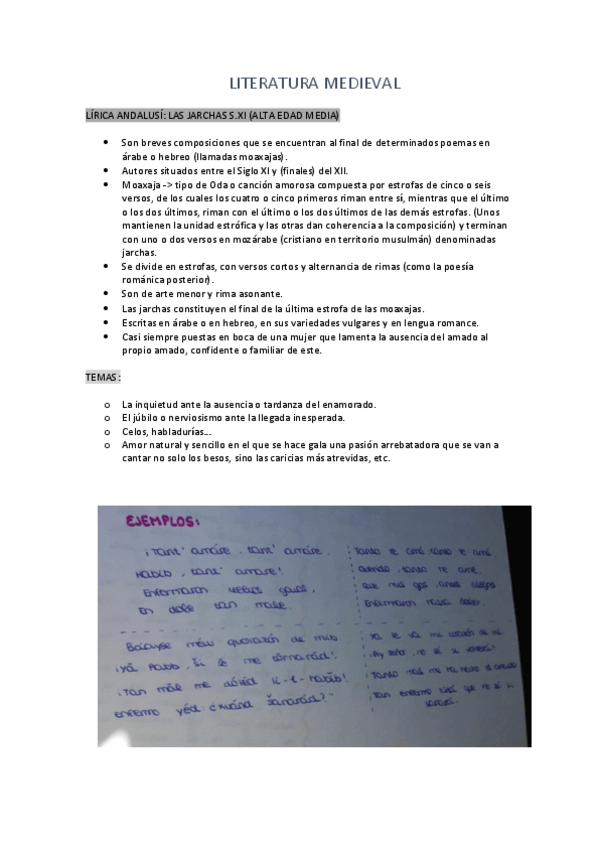 LITERATURA MEDIEVAL
LÍRICA ANDALUSÍ: LAS JARCHAS S.XI (ALTA EDAD MEDIA)
• Son breves composiciones que se encuentran al final de determinados poemas en
árabe o hebreo (llamadas moaxajas).
• Autores situados entre el Siglo XI y (finales) del XII.
• Moaxaja -> tipo de Oda o canción amorosa compuesta por estrofas de cinco o seis
versos, de los cuales los cuatro o cinco primeros riman entre sí, mientras que el último
o los dos últimos, riman con el último o los dos últimos de las demás estrofas. (Unos
mantienen la unidad estrófica y las otras dan coherencia a la composición) y terminan
con uno o dos versos en mozárabe (cristiano en territorio musulmán) denominadas
jarchas.
• Se divide en estrofas, con versos cortos y alternancia de rimas (como la poesía
románica posterior).
• Son de arte menor y rima asonante.
• Las jarchas constituyen el final de la última estrofa de las moaxajas.
• Escritas en árabe o en hebreo, en sus variedades vulgares y en lengua romance.
• Casi siempre puestas en boca de una mujer que lamenta la ausencia del amado al
propio amado, confidente o familiar de este.
TEMAS:
o La inquietud ante la ausencia o tardanza del enamorado.
o El júbilo o nerviosismo ante la llegada inesperada.
o Celos, habladurías...
o Amor natural y sencillo en el que se hace gala una pasión arrebatadora que se van a
cantar no solo los besos, sino las caricias más atrevidas, etc.
EJEMPLOS:
¡Tant' amáre, tant' amáre,
Habib, tant' amare!
Enfermaron
tan male.
Tanto te amé, tanto te amé,
querido, tanto te amé,
que mis
Enfermaron
de mib
¡Yā Rabb, si se me tornarád!
¡Tan māl me
enfermo yéd
Ya se va mi corazón de mí.
¡Ay señor, no sé si
¡Tanto
¡Tan enfermo
sanará.